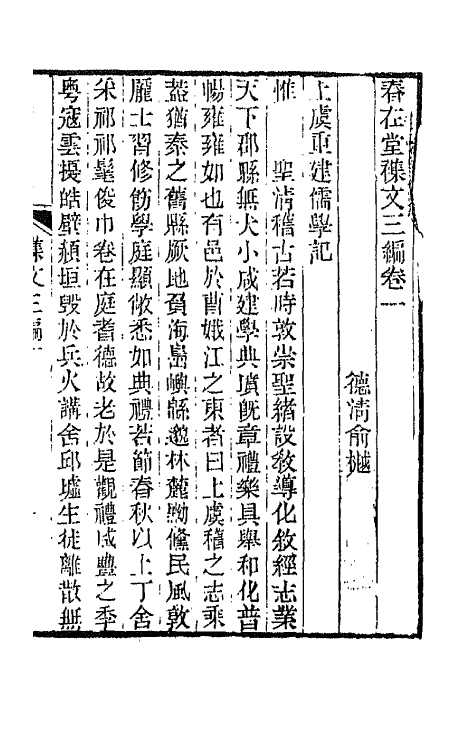 春在堂襍文三編卷一
德淸俞樾
上虞重建儒學記
惟　聖淸稽古若時敦崇聖緒設敎導化敘經志業
天下郡縣無大小咸建學典瀆旣章禮樂具舉和化普
暢雍雍如也有邑於曹娥江之東者曰上虞稽之志乘
葢猶秦之舊縣厥地負海嵒嶼緜邈林麓黝儵民風敦
龐士習修飭學庭顯敞悉如典禮若節春秋以上丁舍
采祁祁髦俊巾卷在庭耆德故老於是觀禮咸豐之季
粵寇雲擾皓壁頳垣毀於兵火講舍邱墟生徒離散無
襍文三編一